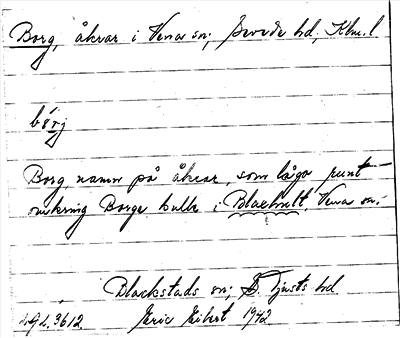 Borg, åkrar i Vena sn, Sevede hd, Klm. l
bo̗rj
Borg namn på åkrar, som låga runt
omkring Borge kulle i Blackhult, Vena sn.
Blackstads sn; S. Tjusts hd
1942